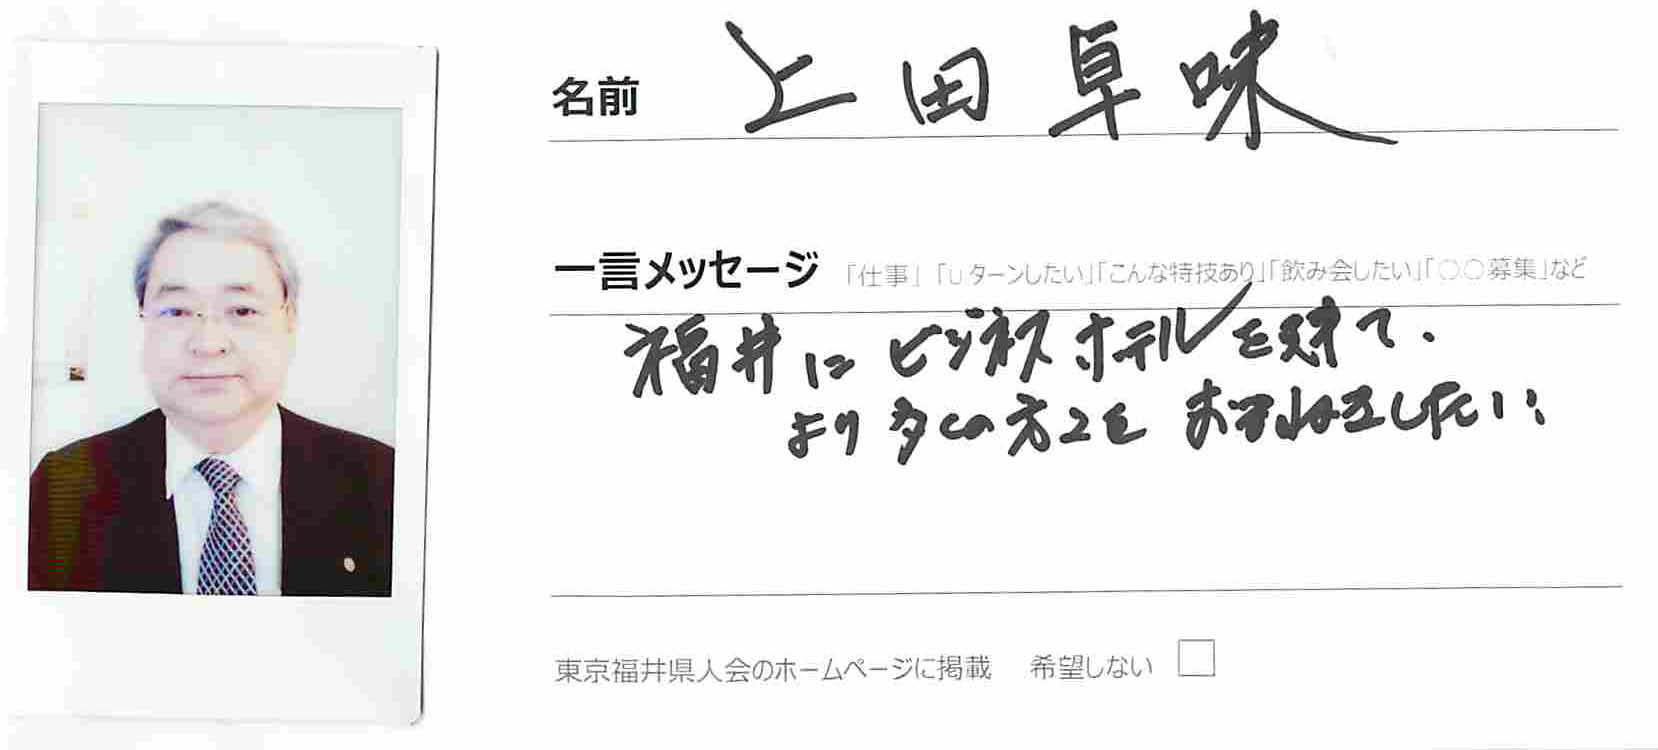 名前 上田卓味
一言メッセージ 「仕事」「Uターンしたい」「こんな特技あり」「飲み会したい」「○○募集」など
福井にビジネスホテルを建て、
より多くの方々を したい
東京福井県人会のホームページに掲載 希望しない